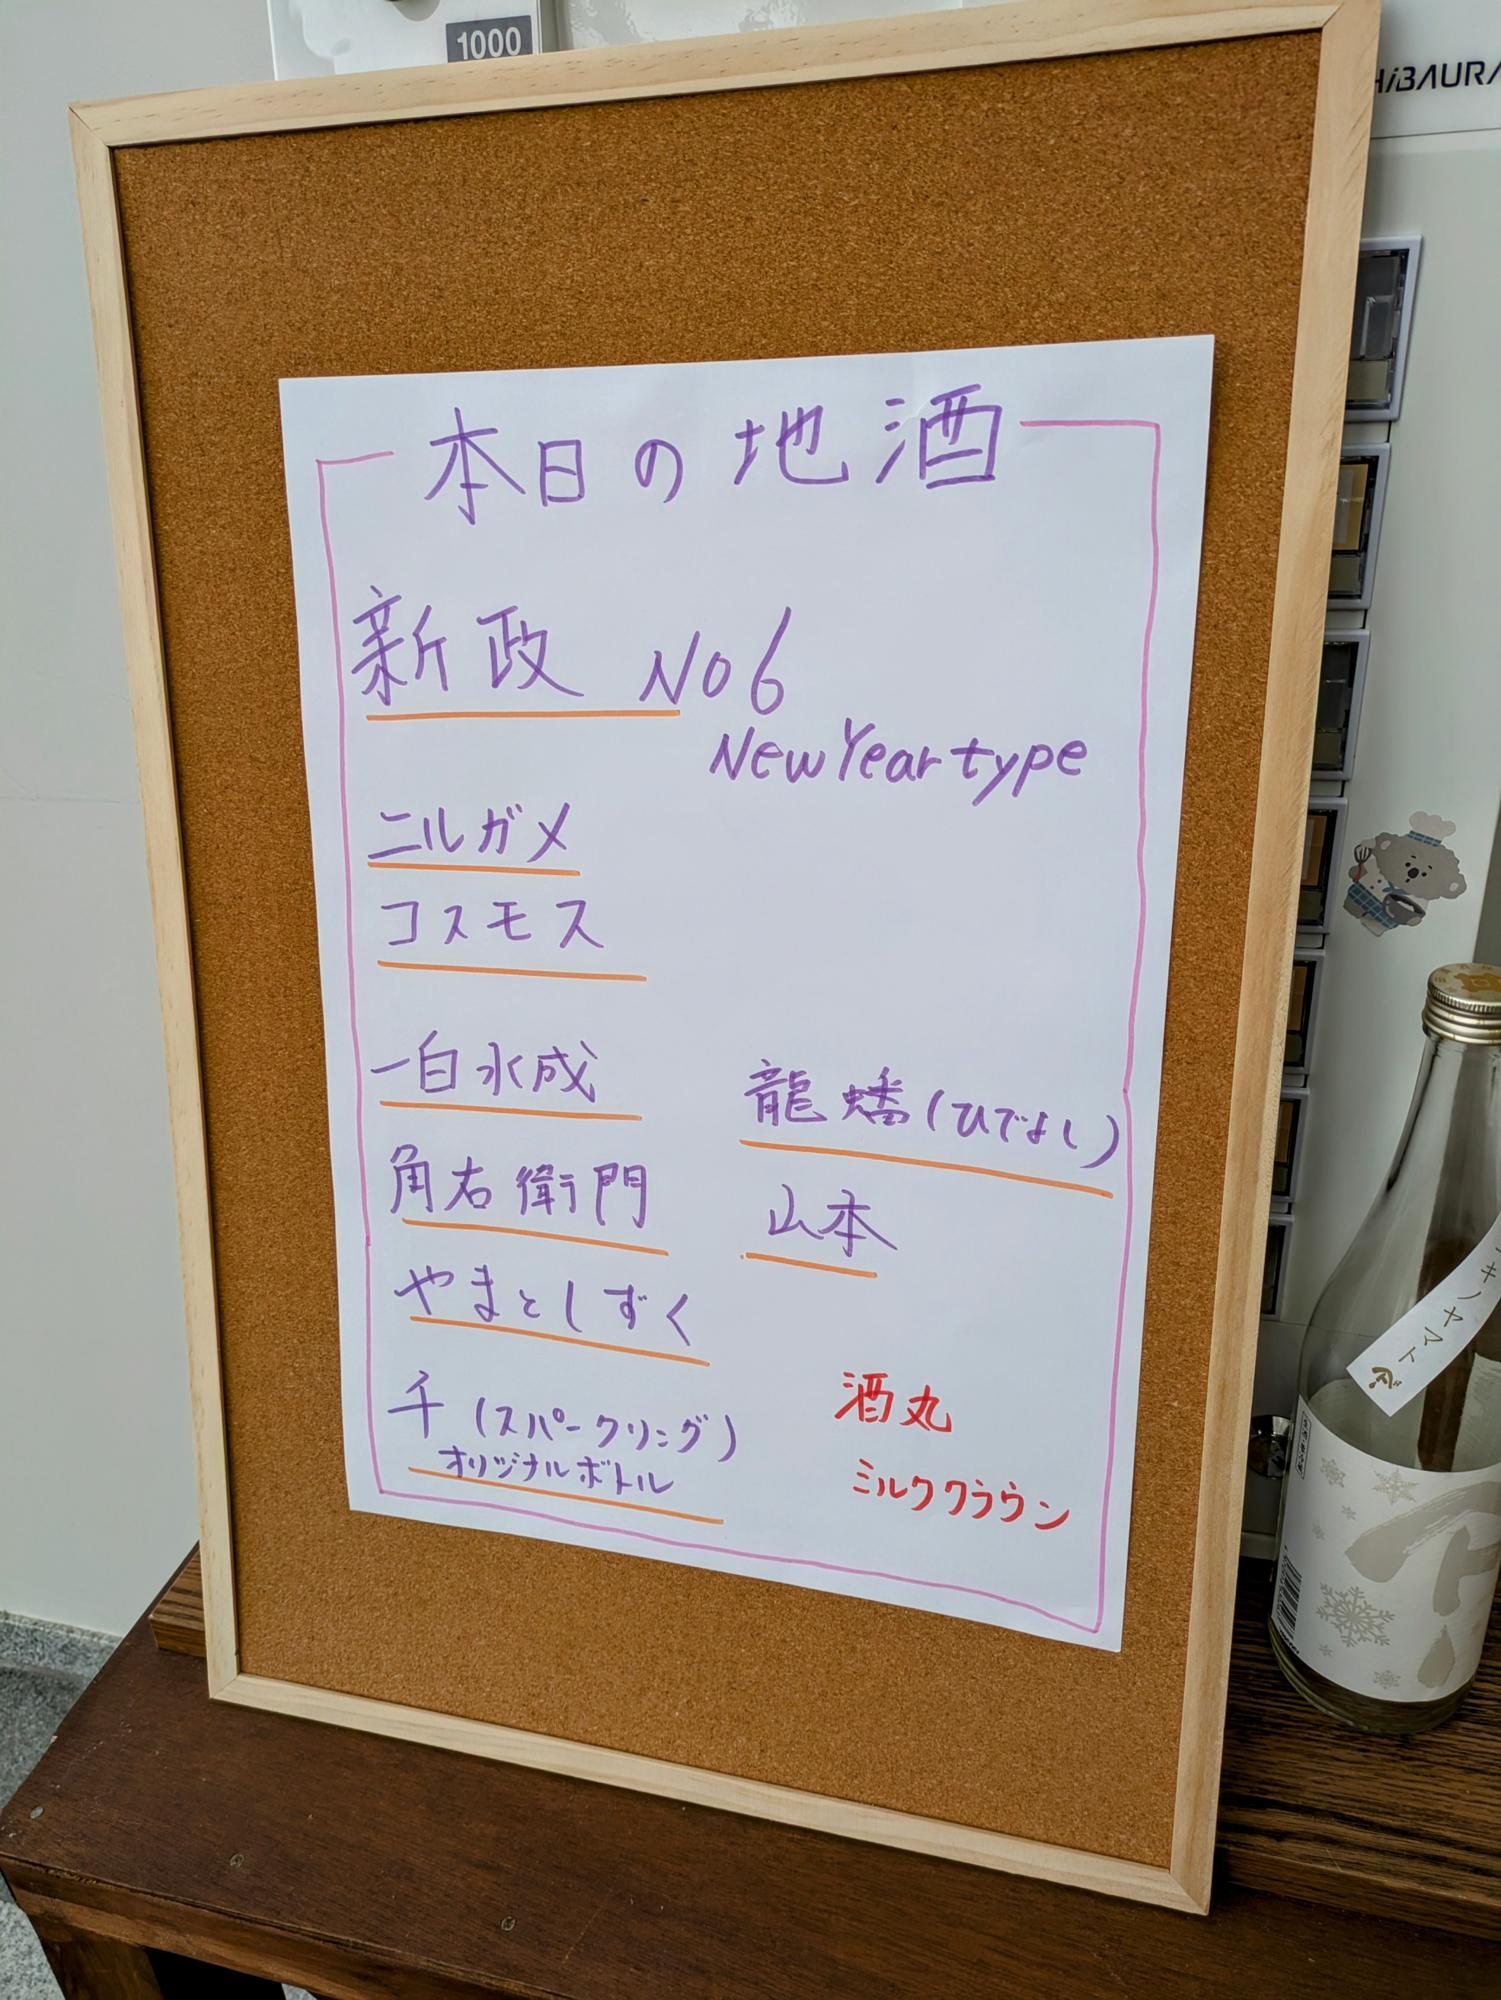 1000
HiBAURA
本日の地酒
新政 No6
New Year type
ニルガメ
コスモス
一白水成
龍蟠(ひでよし)
角右衛門
山本
やまとしずく
千 (スパークリング)
オリジナルボトル
酒丸
ミルククラウン
キノヤマト